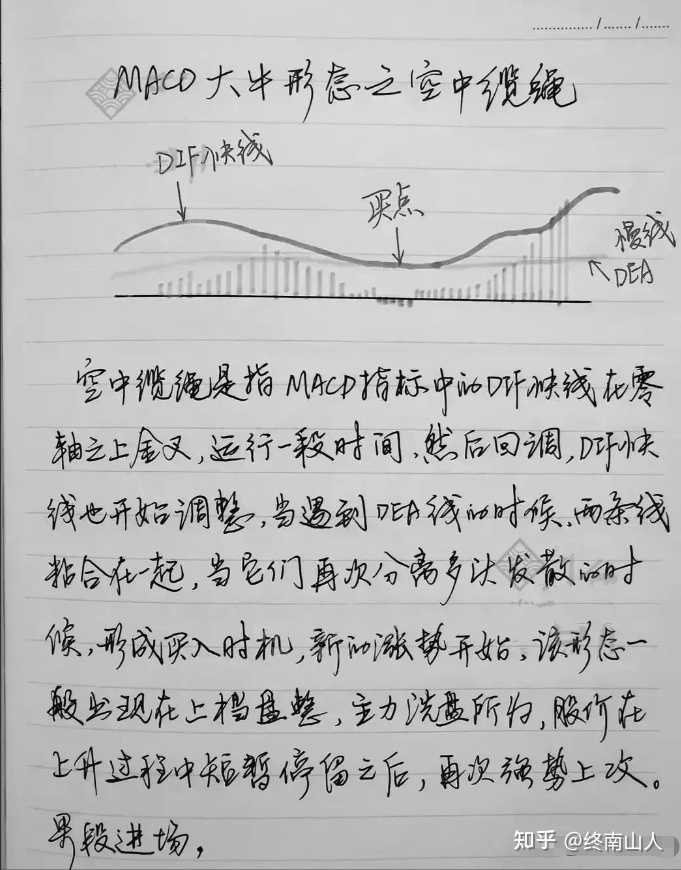 ............... / ....... / .......
MACD大牛形态之空中缆绳
DIF快线
买点
慢线
DEA
空中缆绳是指MACD指标中的DIF快线在零
轴之上金叉,运行一段时间,然后回调,DIF快
线也开始调整,当遇到DEA线的时候,两条线
粘合在一起,当它们再次分离多头发散的时
候,形成买入时机,新的涨势开始,该形态一
般出现在上档盘整,主力洗盘所为,股价在
上升过程中短暂停留之后,再次强势上攻。
果段进场,
知乎 @终南山人